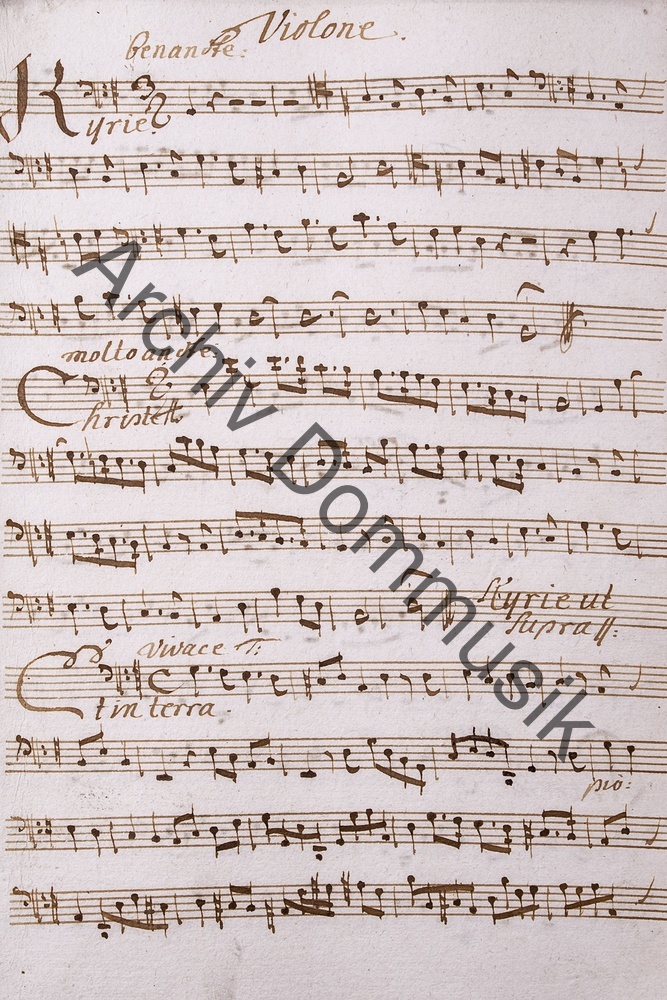 Violone.
benandte:
Kyrie.
molto andte:
Christe //.
Kyrie ut
supra //:
Vivace T:
Et in terra.
pio:
Archiv Dommusik